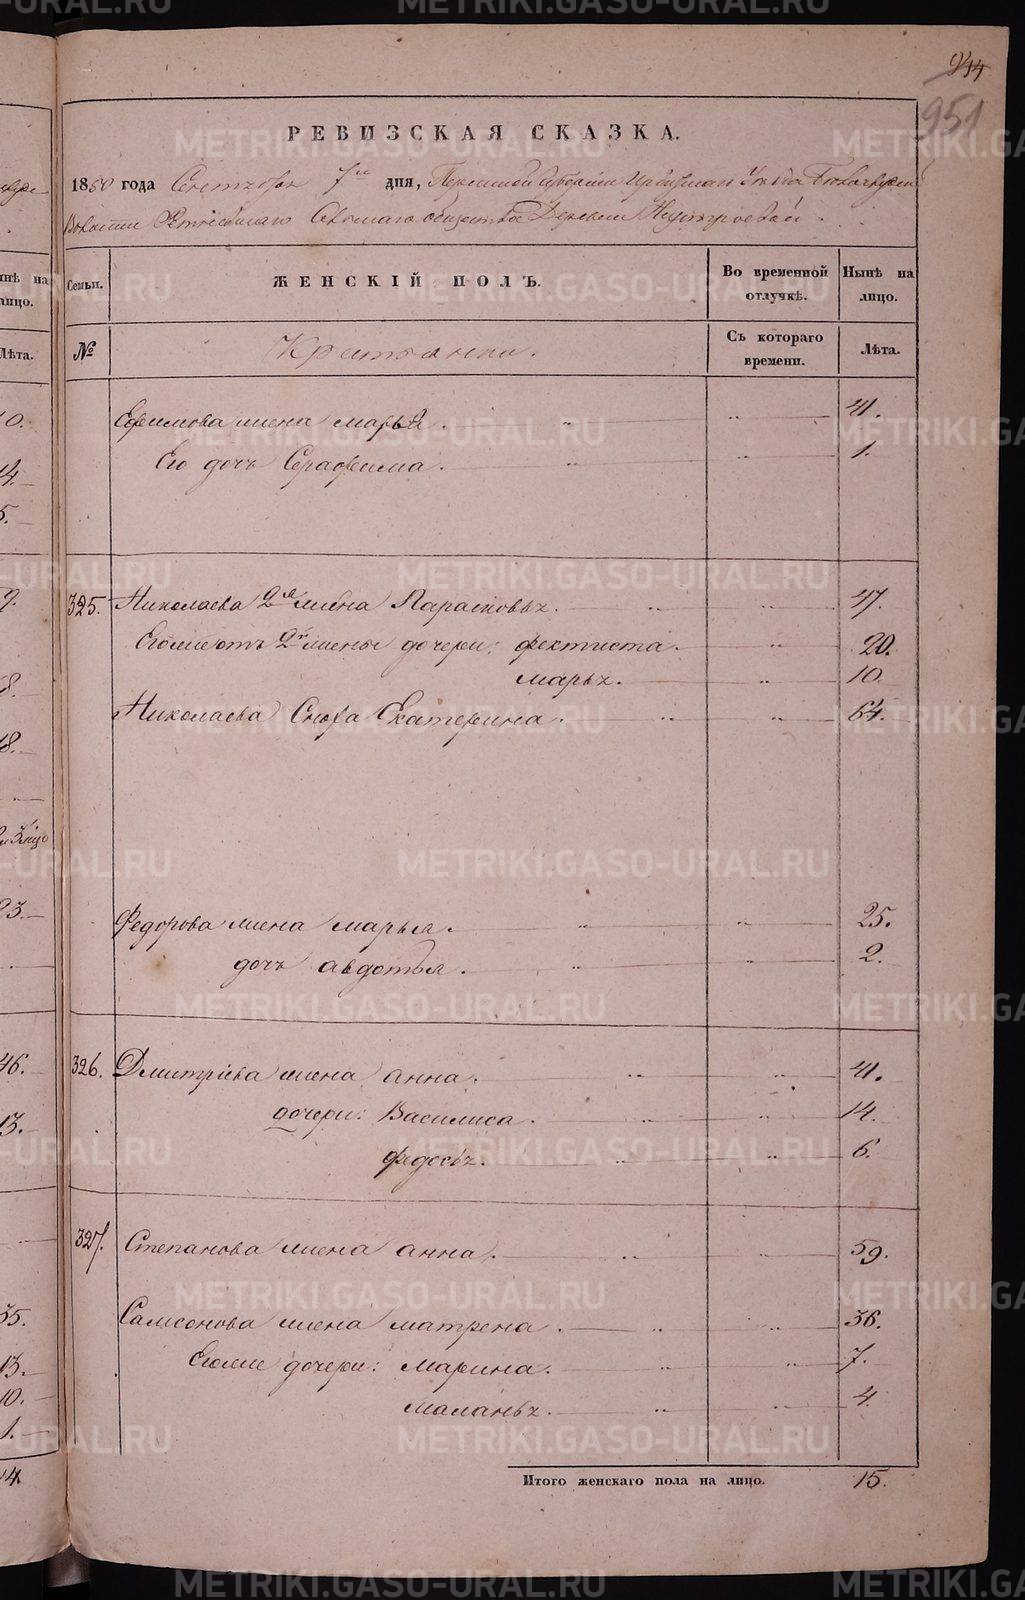 944
951
РЕВИЗСКАЯ СКАЗКА.
1850 года Сентября 7го дня, Пермской Губернии Ирбитскаго Уезда
Волости Сельскаго общества Деревни
Семьи. ЖЕНСКІЙ ПОЛЪ. Во временной отлучкѣ. Нынѣ на лицо.
№ Крестьянки. Съ котораго времени. Лѣта.
Ефимова жена Марья. 41.
Его дочь Серафима. 1.
325. Николаева 2я жена Парасковья. 47.
Егоже отъ 2й жены дочери: Фектиста. 20.
Марья. 10.
Николаева Сноха Екатерина. 64.
Федорова жена Марья. 25.
дочь Авдотья. 2.
326. Дмитріева жена Анна. 41.
дочери: Василиса. 14.
Федосья. 6.
327. Степанова жена Анна. 59.
Самсонова жена Матрена. 36.
Егоже дочери: Марина. 7.
Маланья. 4.
Итого женскаго пола на лицо. 15.
METRIKI.GASO-URAL.RU